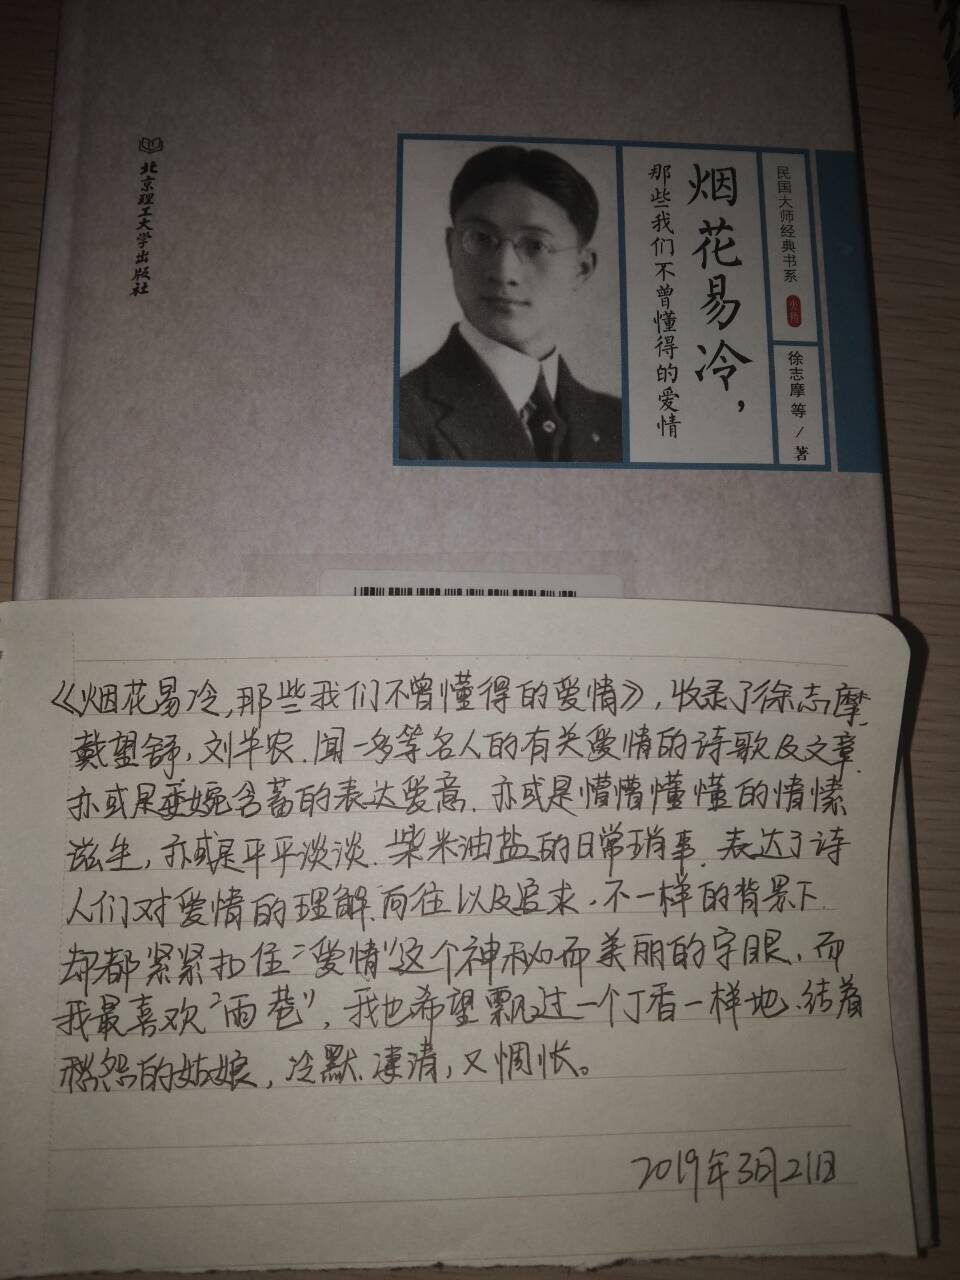 北京理工大学出版社
民国大师经典书系
徐志摩 等/著
烟花易冷，
那些我们不曾懂得的爱情
《烟花易冷,那些我们不曾懂得的爱情》，收录了徐志摩,
戴望舒，刘半农.闻一多等名人的有关爱情的诗歌及文章.
亦或是委婉含蓄的表达爱意.亦或是懵懵懂懂的情愫
滋生，亦或是平平淡淡.柴米油盐的日常琐事.表达了诗
人们对爱情的理解.向往以及追求.不一样的背景下.
却都紧紧扣住"爱情"这个神秘而美丽的字眼.而
我最喜欢"雨巷"，我也希望飘过一个丁香一样地.结着
愁怨的姑娘，冷默.凄清，又惆怅。
2019年3月21日